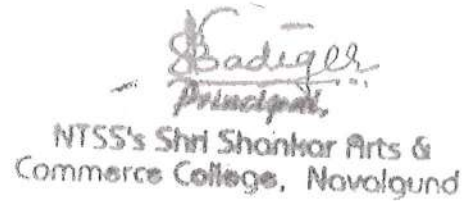 SBadiger
Principal,
NTSS's Shri Shankar Arts &
Commerce College, Navalgund